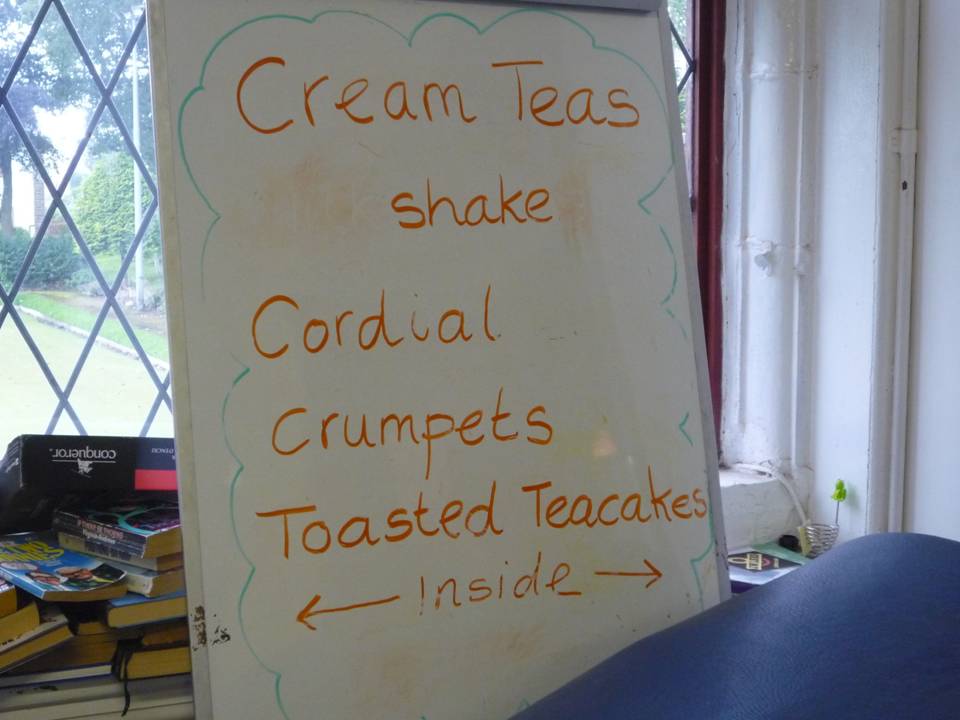 Cream Teas
shake
Cordial
Crumpets
Toasted Teacakes
← Inside →
conqueror